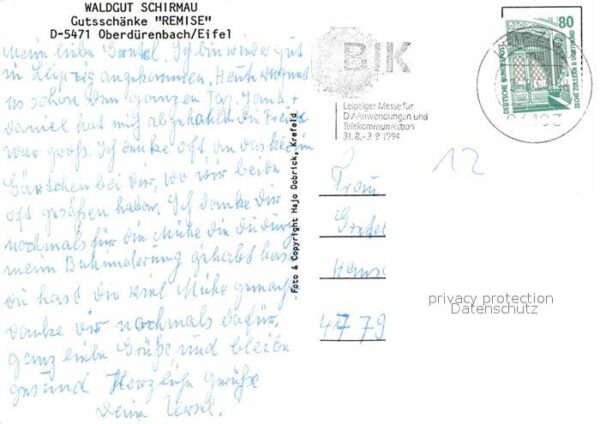 WALDGUT SCHIRMAU
Gutsschänke "REMISE"
D-5471 Oberdürenbach/Eifel
Meine liebe Gretel. Ich bin wieder gut
in Leipzig angekommen. Heute regnet
es schon den ganzen Tag.
Daniel hat mich abgeholt die Freude
war groß. Ich denke oft an das kleine
Gärtchen bei dir, wo wir beide
oft gesessen haben. Ich danke dir
nochmals für die Mühe die du durch
meine Behinderung gehabt hast
du hast dir viel Mühe gemacht
danke dir nochmals dafür,
ganz liebe Grüße und bleibe
gesund Herzliche Grüße
Deine Ursel.
Foto & Copyright Hajo Dobrick, Krefeld
BIK
Leipziger Messe für
DV-Anwendungen und
Telekommunikation
31.8.-3.9.1994
80
DEUTSCHE BUNDESPOST
ZECHE ZOLLERN II DORTMUND
12
Frau
Gretel
4779
privacy protection
Datenschutz